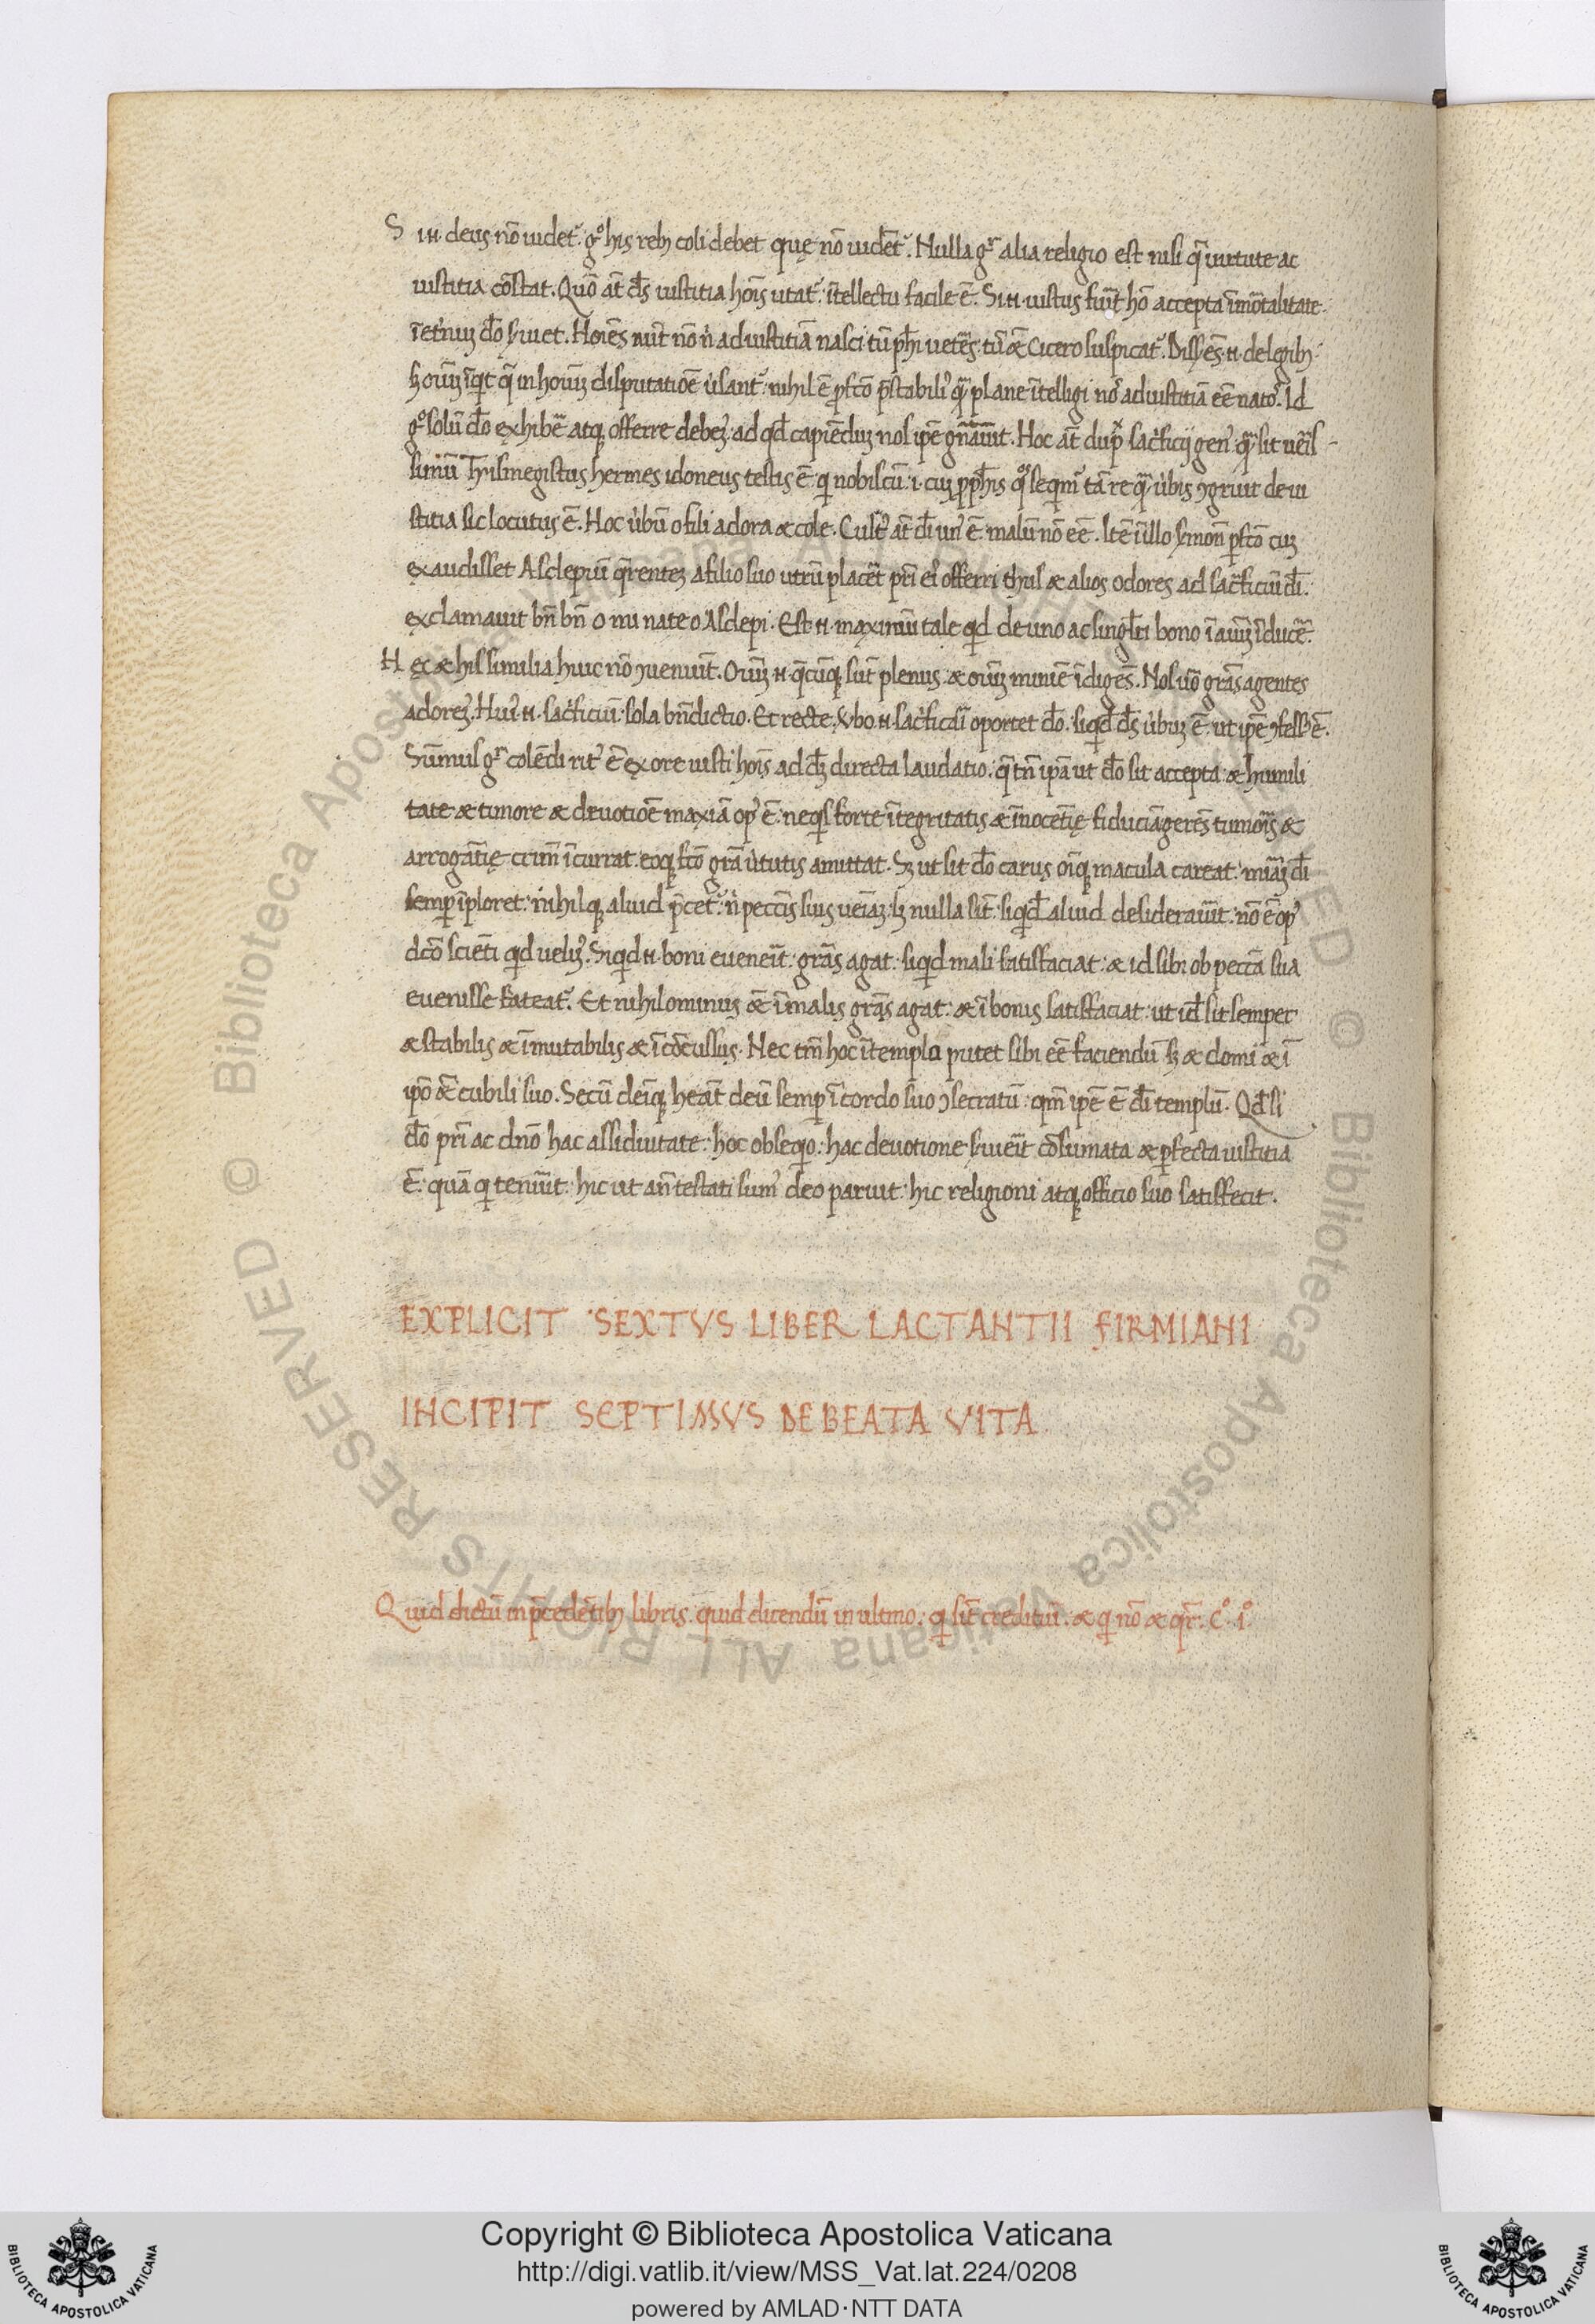 S in deus nō uidet᷑. gͦ his rebꝫ coli debet quę nō uidēt᷑. Nulla gͬ alia religio est nisi q̄ uirtute ac
iustitia cōstat. Quō āt d̄s iustitia hoīs utat᷑. ītellectu facile ē. Si .n. iustus fuīt hō accepta īmōtalitate.
ī et'nuꝫ d̄o s̄uiet. Hoīes aūt nō n̄ ad iustitiā nasci tū ph̄i uet̄es. tū ǣ Cicero suspicat᷑. Diss̄es .n. de legibꝫ
sꝫ oīuꝫ īqt q̄ in hoīuꝫ disputatiōe ūsant᷑. nihil ē ꝓfc̄o p̄stabili᷒ q̄ plane ītelligi no᷒ ad iustitiā eē nato᷒. Id
gͦ solū d̄o exhibē atq; offerre debeꝫ. ad qd̄ capiēduꝫ nos ip̄e gn̄auit. Hoc āt dup̄ sac̄ficij gen᷒ q̄ sit ueīs-
simū Trismegistus hermes idoneus testis ē. q nobiscū .i. cuꝫ ꝓph̄is q᷒ seqm᷒ tā re q̄ ūbis ꝯgruit de iu
stitia sic locutus ē. Hoc ūbū o fili adora æ cole. Cult᷒ āt d̄i un᷒ ē. malū nō eē. Itē ī illo s̄mone ꝑfc̄o cuꝫ
exaudisset Asclepiū q̄renteꝫ a filio suo utrū placēt pr̄i ei᷒ offerri thus æ alios odores ad sac̄ficiū d̄i.
exclamauit bn̄ bn̄ o mi nate o Asclepi. Est .n. maximū tale qd de uno ac singl̄ri bono ī aīuꝫ īducē.
H ęc æ his similia huic nō ꝯueniūt. Oīuꝫ .n. q̄cūq; sūt plenus. æ oīuꝫ minīe īdigēs. Nos uō grās agentes
adoreꝫ. Hui᷒ .n. sac̄ficiū. sola bn̄dictio. Et recte. Vbo .n. sac̄ficāi oportet d̄o. siqd̄ d̄s ūbuꝫ ē. ut ip̄e ꝯfess᷒ ē.
Sūmus gͬ colēdi rit᷒ ē ex ore iusti hoīs ad d̄ꝫ directa laudatio. q̄ tn̄ ipā ut d̄o sit accepta. æ humili
tate æ timore æ deuotiōe maxīa op᷒ ē. neqs forte ītegritatis æ īnocētię fiduciā gerēs tumoīs æ
arrogātię crimē īcurrat. eoq; fc̄o grā ūtutis amittat. Sꝫ ut sit d̄o carus oīq; macula careat. mīaꝫ d̄i
semꝑ īploret. nihilq; aliud p̄cet᷑. n̄ peccīs suis ueīaꝫ. lꝫ nulla sīt. siqd̄ aliud desiderauīt. nō ē op᷒
dc̄o sciēti qd uelim᷒. Siqd .n. boni eueneīt. grās agat. siqd mali satisfaciat. æ id sibi ob peccā sua
euenisse fateat᷑. Et nihilominus ǣ ī malis grās agat. æ ī bonis satisfaciat. ut id̄ sit semper
æ stabilis æ īmutabilis æ īcōcussus. Nec tm̄ hoc ī templo putet sibi eē faciendū. sꝫ æ domi æ ī
ipō ǣ cubili suo. Secū deīq; heāt deū semꝑ ī corde suo ꝯsecratū. qm̄ ip̄e ē d̄i templū. Qd̄ si
d̄o pr̄i ac dn̄o hac assiduitate. hoc obseqio. hac deuotione s̄uieīt cōsumata æ ꝑfecta iustitia
ē. quā q tenuīt. hic ut an̄ testati sum᷒ deo paruit. hic religioni atq; officio suo satisfecit.
EXPLICIT SEXTVS LIBER LACTANTII FIRMIANI
INCIPIT SEPTIMVS DE BEATA VITA
Quid dictū in p̄cedētibꝫ libris. quid dicendū in ultimo. q sīt credituri. æ q nō æ qr̄. cͦ. 1ͦ.
Copyright © Biblioteca Apostolica Vaticana
http://digi.vatlib.it/view/MSS_Vat.lat.224/0208
powered by AMLAD·NTT DATA